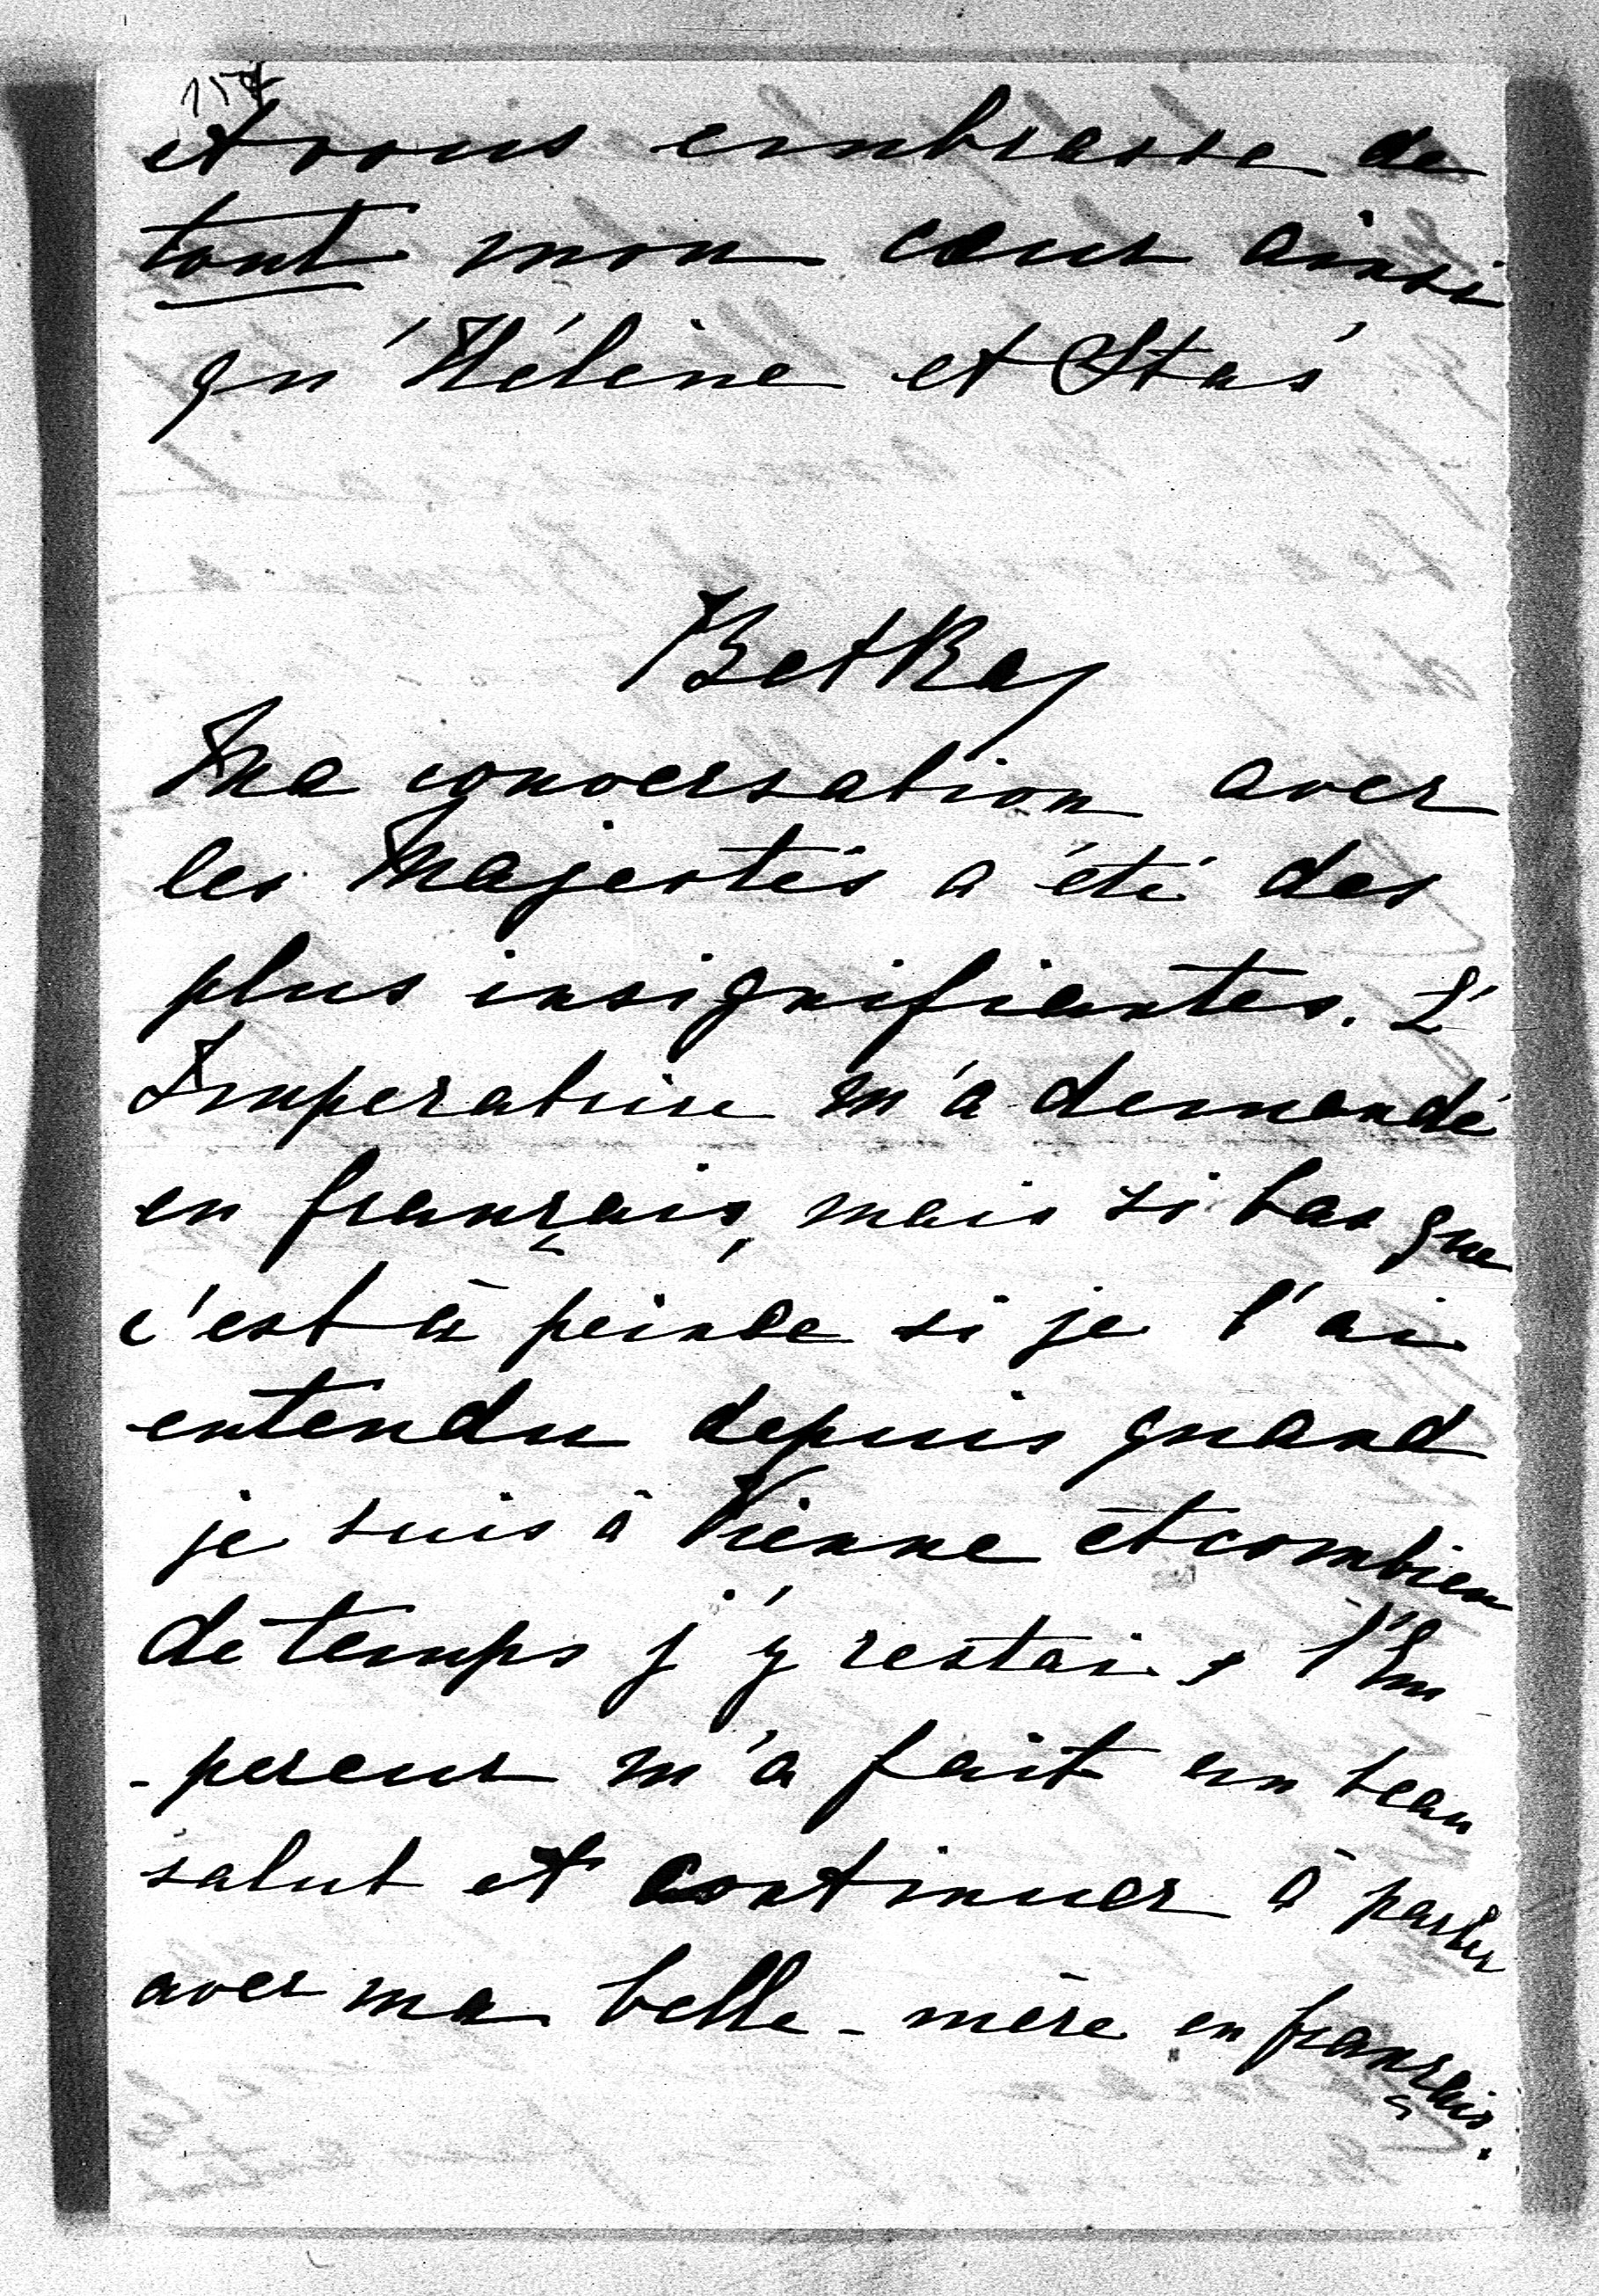 et vous embrasse de
tout mon cœur ainsi
qu'Hélène et Staś
Betka
Ma conversation avec
les Majestés a été des
plus insignifiantes. L'
Imperatrice m'a demandé
en français, mais si bas que
c'est à peine si je l'ai
entendu depuis quand
je suis à Vienne et combien
de temps j'y restais, l'Em
-pereur m'a fait un beau
salut et continuer à parler
avec ma belle-mère en français.